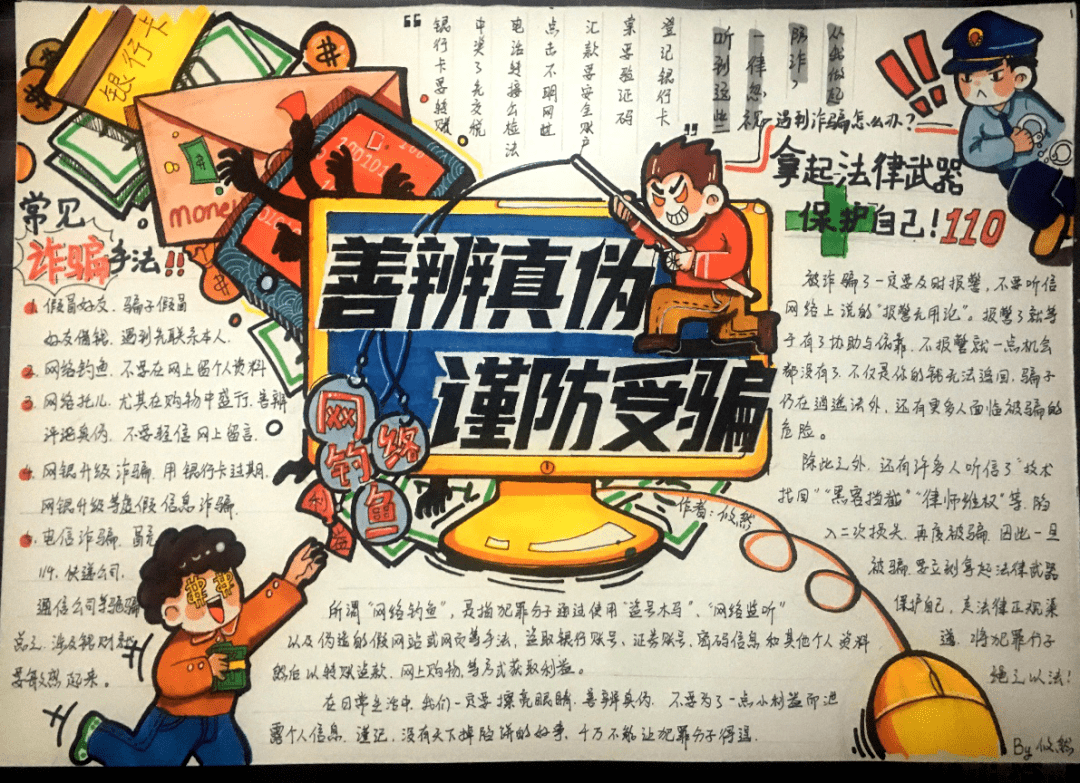 银行卡
money
“银行卡要转账
中奖了先交税
电话转接公检法
点击不明网址
汇款要安全账户
索要验证码
登记银行卡”
听到这些
一律忽视
防诈，
从我做起
遇到诈骗怎么办？
拿起法律武器
保护自己！110
善辨真伪
谨防受骗
网络
钓鱼
利益
作者：攸然
常见
诈骗手法!!
1. 假冒好友，骗子假冒
好友借钱，遇到先联系本人.
2. 网络钓鱼，不要在网上留个人资料
3. 网络托儿，尤其在购物中盛行，善辨
评论真伪，不要轻信网上留言.
4. 网银升级诈骗，用银行卡过期、
网银升级等虚假信息诈骗.
5. 电信诈骗，冒充
114、快递公司、
通信公司等骗骗
总之，涉及钱财就
要敏感起来。
所谓“网络钓鱼”，是指犯罪分子通过使用“盗号木马”、“网络监听”
以及伪造的假网站或网页等手法，盗取银行账号、证券账号、密码信息和其他个人资料
然后以转账盗款、网上购物等方式获取利益。
在日常生活中，我们一定要擦亮眼睛，善辨真伪，不要为了一点小利益而泄
露个人信息，谨记，没有天下掉馅饼的好事，千万不能让犯罪分子得逞.
被诈骗了一定要及时报警，不要听信
网络上说的“报警无用论”。报警了就等
于有了协助与依靠，不报警就一点机会
都没有了.不仅是你的钱无法追回，骗子
仍在逍遥法外，还有更多人面临被骗的
危险。
除此之外，还有许多人听信了“技术
找回”“黑客拦截”“律师维权”等，陷
入二次损失，再度被骗，因此一旦
被骗，要立刻拿起法律武器
保护自己，走法律正规渠
道，将犯罪分子
绳之以法！
By 攸然